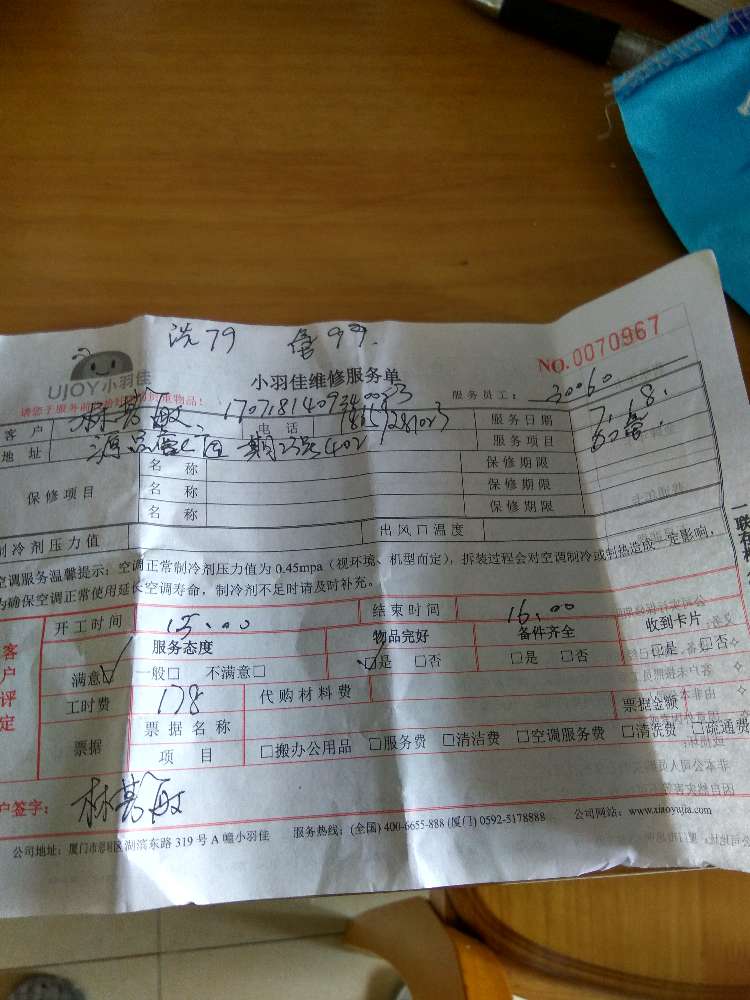 洗79 管99.
NO.0070967
UJOY小羽佳
小羽佳维修服务单
服务员工: 30060
客户 林 敏 17071814093400 电话 服务日期 7.18.
地址 402 服务项目
保修项目 名称 保修期限
名称 保修期限
名称 保修期限
制冷剂压力值 出风口温度
空调服务温馨提示: 空调正常制冷剂压力值为 0.45mpa (视环境、机型而定), 拆装过程会对空调制冷或制热造成一定影响,
为确保空调正常使用延长空调寿命, 制冷剂不足时请及时补充。
客户评定
开工时间 15:00 结束时间 16:00
服务态度 物品完好 备件齐全 收到卡片
满意√ 一般□ 不满意□ □是 □否 □是 □否 □是 □否
工时费 178 代购材料费 票据金额
票据 票据名称
项目 □搬办公用品 □服务费 □清洁费 □空调服务费 □清洗费 □疏通费
户签字: 林 敏
公司地址: 厦门市思明区湖滨东路 319 号 A 幢小羽佳 服务热线: (全国) 400-6655-888 (厦门) 0592-5178888 公司网站: www.xiaoyujia.com